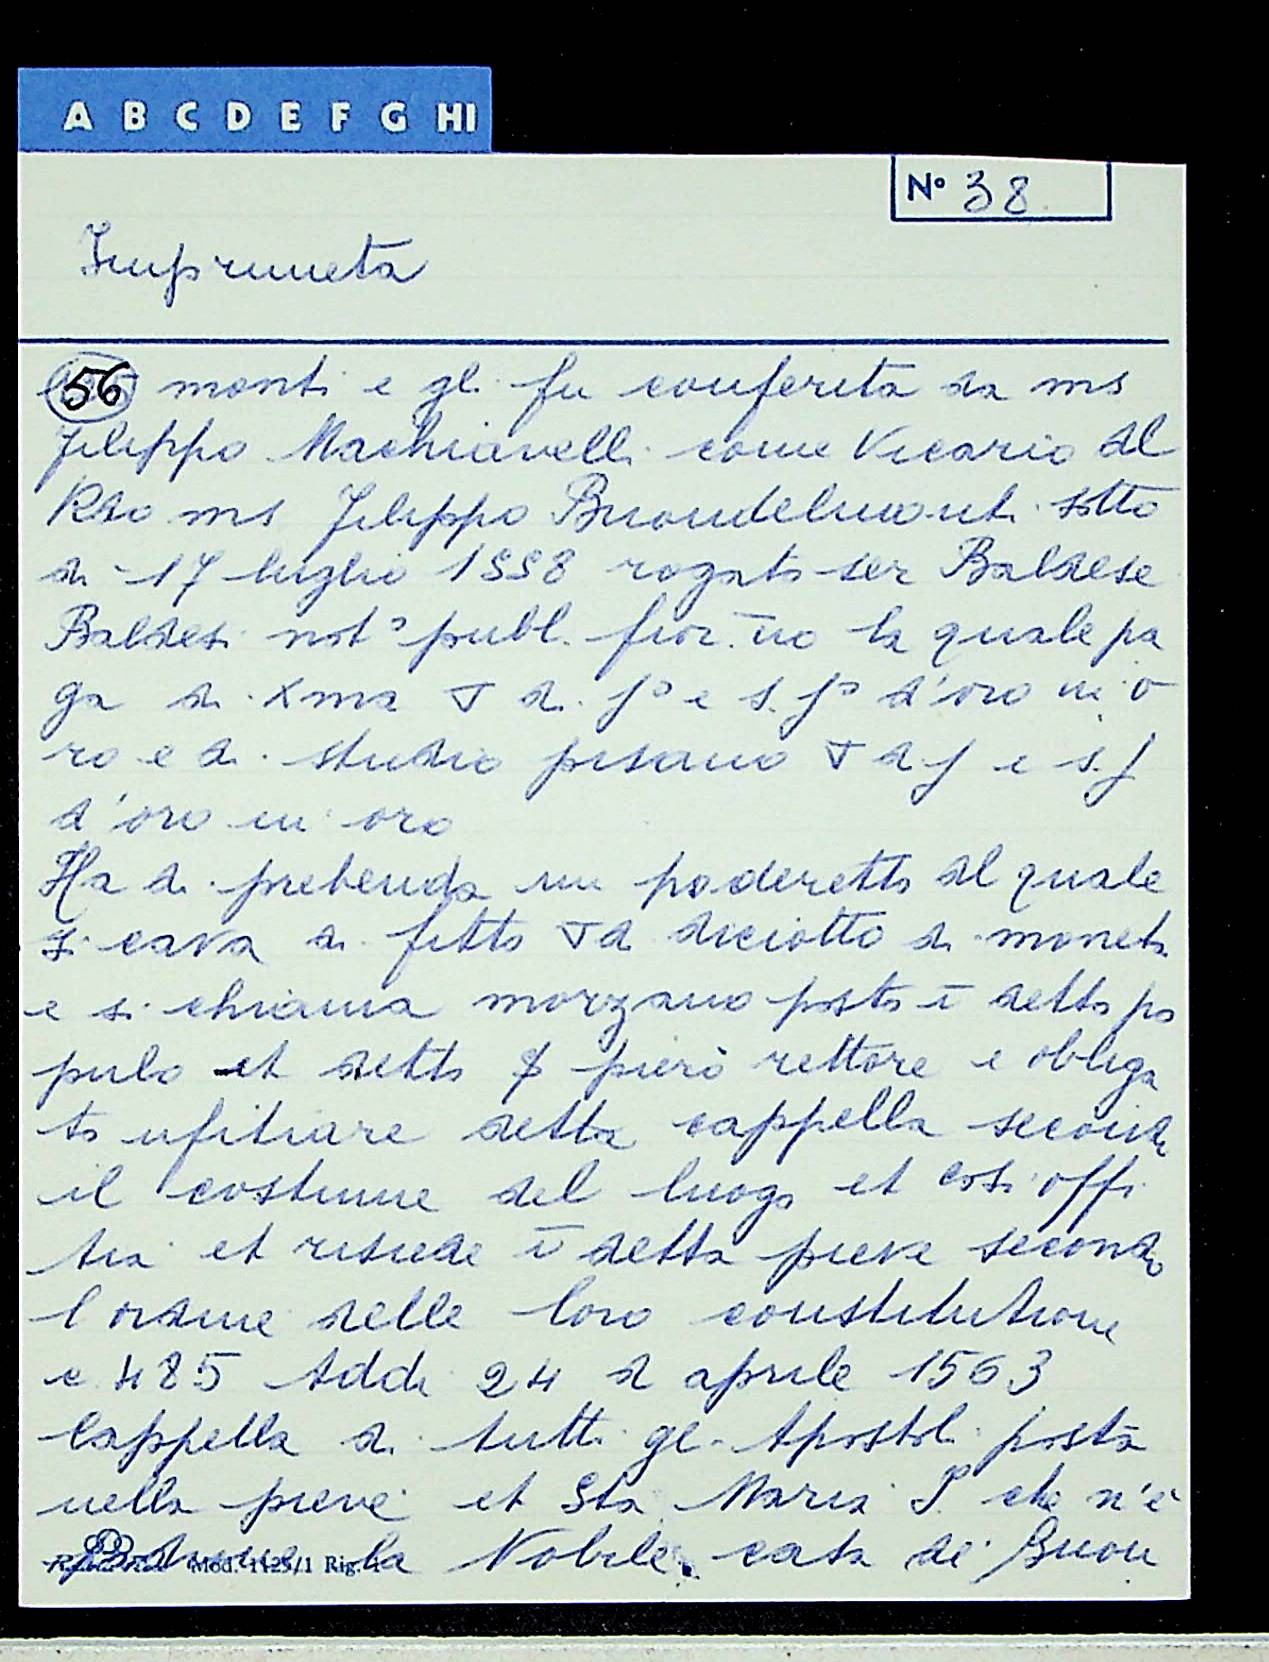 A B C D E F G HI
N° 38
Impruneta
56 monti e gli fu conferita da ms
filippo Machiavelli come Vicario del
Rdo ms filippo Buondelmonti sotto
di 17 luglio 1558 rogato ser Baldese
Baldesi not° publ. fior.no la quale pa
ga di Xma ∇ di f° e s. f° d'oro in o
ro e di studio pisano ∇ d f e s. f
d'oro in oro
Ha di prebenda un poderetto del quale
si cava di fitto ∇ d diciotto di moneta
e si chiama morzano posto ī detto po
pulo et detto piero rettore e obliga
to ufitiare detta cappella secondo
il costume del luogo et così offi
tia et risiede ī detta pieve secondo
l ordine delle loro constitutione
c 485 Addi 24 d aprile 1563
Cappella di tutti gli Apostoli posta
nella pieve et Sta Maria I. che n'è
padrone la Nobile casa de' Buon
Mod. 1125/1 Rig.